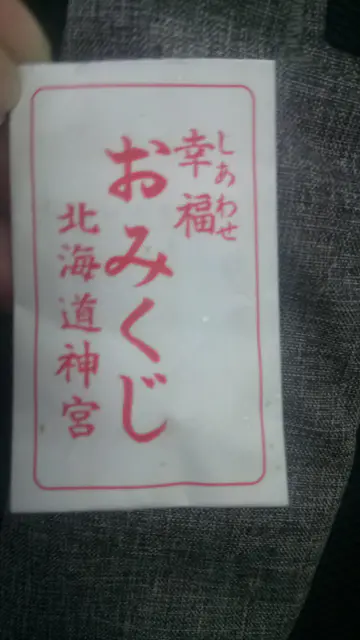 しあわせ
幸福
おみくじ
北海道神宮